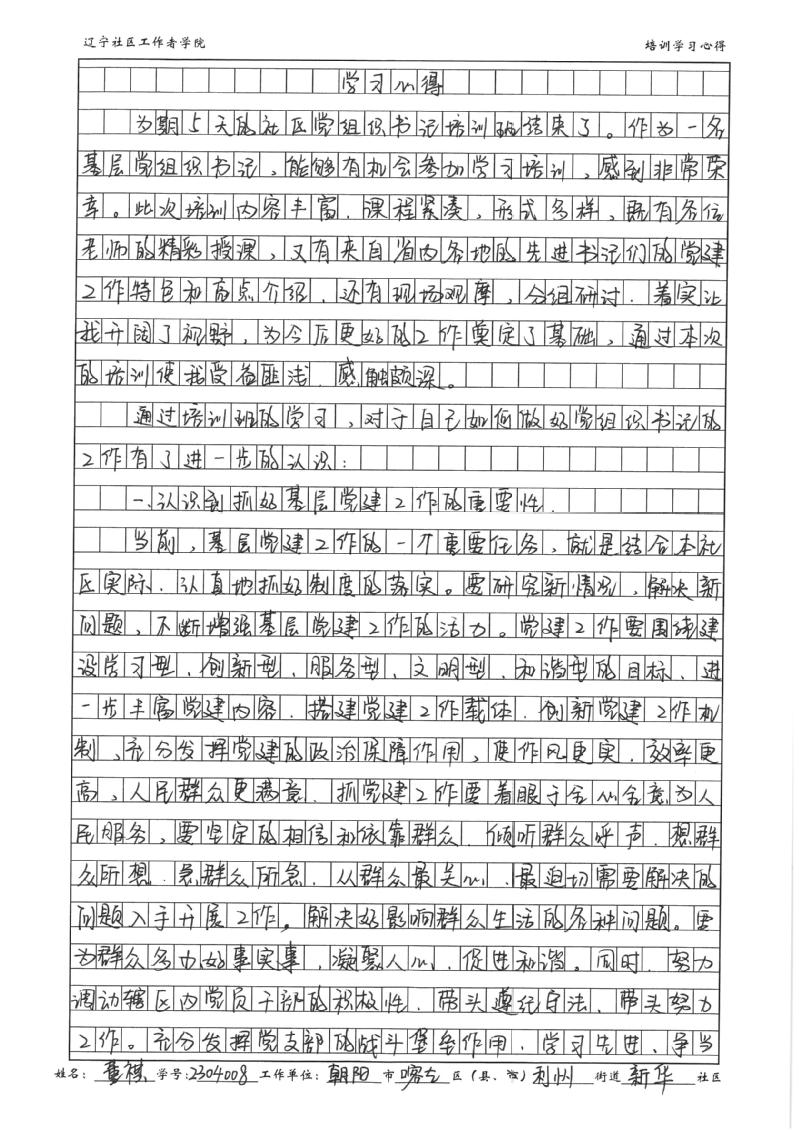 辽宁社区工作者学院 培训学习心得
学习心得
为期5天的社区党组织书记培训班结束了。作为一名
基层党组织书记，能够有机会参加学习培训，感到非常荣
幸。此次培训内容丰富、课程紧凑，形式多样，既有各位
老师的精彩授课，又有来自省内各地的先进书记们的党建
工作特色和亮点介绍、还有现场观摩，分组研讨、着实让
我开阔了视野，为今后更好的工作奠定了基础，通过本次
的培训使我受益匪浅、感触颇深。
通过培训班的学习，对于自己如何做好党组织书记的
工作有了进一步的认识：
一、认识到抓好基层党建工作的重要性、
当前，基层党建工作的一个重要任务，就是结合本社
区实际、认真地抓好制度的落实。要研究新情况，解决新
问题，不断增强基层党建工作的活力。党建工作要围绕建
设学习型、创新型、服务型、文明型、和谐型的目标、进
一步丰富党建内容、搭建党建工作载体、创新党建工作机
制、充分发挥党建的政治保障作用，使作风更实、效率更
高，人民群众更满意、抓党建工作要着眼于全心全意为人
民服务，要坚定的相信和依靠群众、倾听群众呼声、想群
众所想、急群众所急、从群众最关心、最迫切需要解决的
问题入手开展工作。解决好影响群众生活的各种问题。要
为群众多办好事实事，凝聚人心、促进和谐。同时、努力
调动辖区内党员干部的积极性、带头遵纪守法、带头努力
工作。充分发挥党支部的战斗堡垒作用、学习先进、争当
姓名：董祺 学号：2304008 工作单位：朝阳 市 喀左 区（县、市）利州 街道 新华 社区